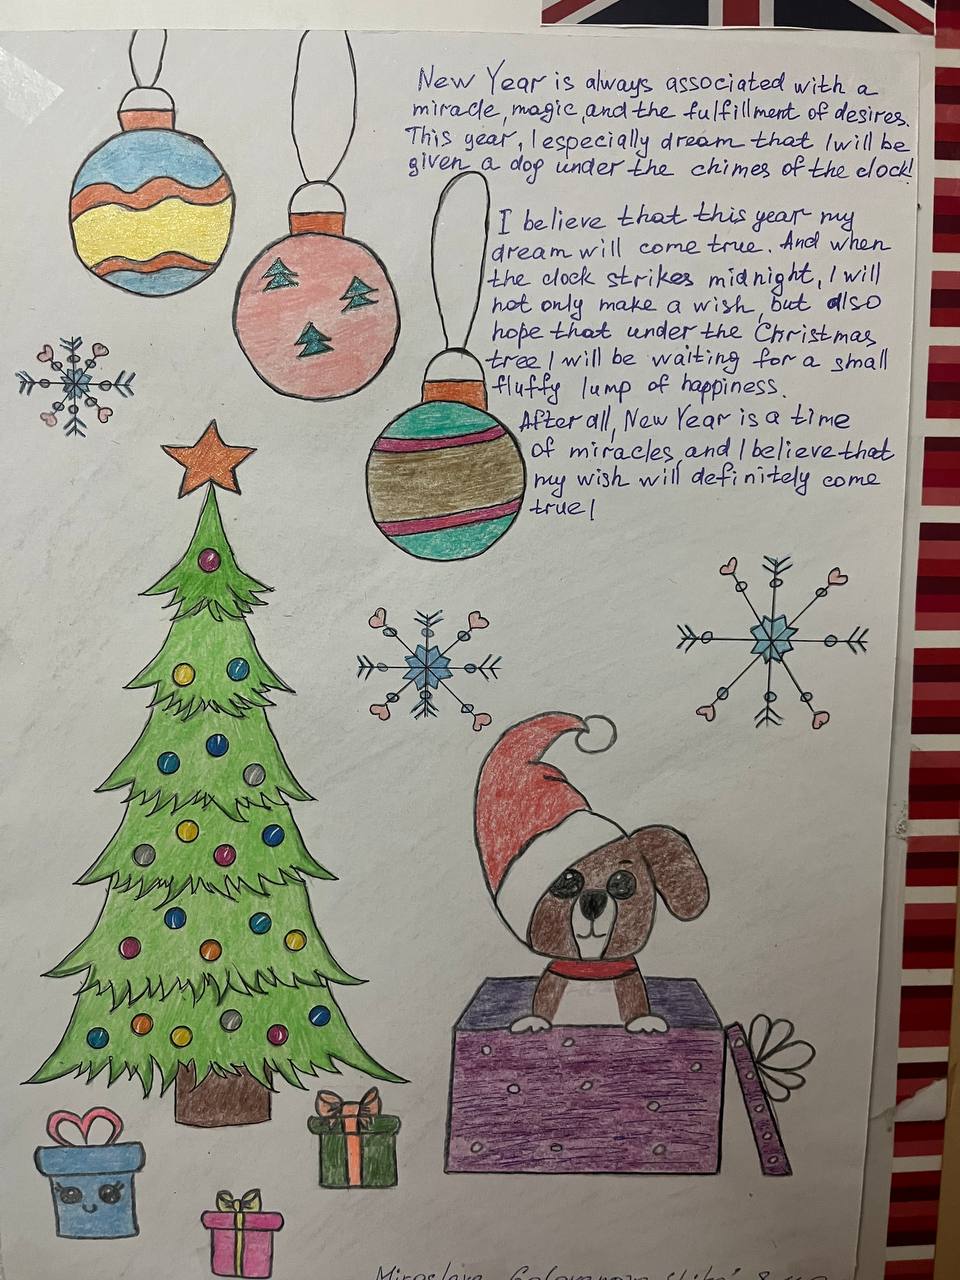 New Year is always associated with a
miracle, magic, and the fulfillment of desires.
This year, I especially dream that I will be
given a dog under the chimes of the clock!
I believe that this year my
dream will come true. And when
the clock strikes midnight, I will
not only make a wish, but also
hope that under the Christmas
tree I will be waiting for a small
fluffy lump of happiness.
After all, New Year is a time
of miracles, and I believe that
my wish will definitely come
true!